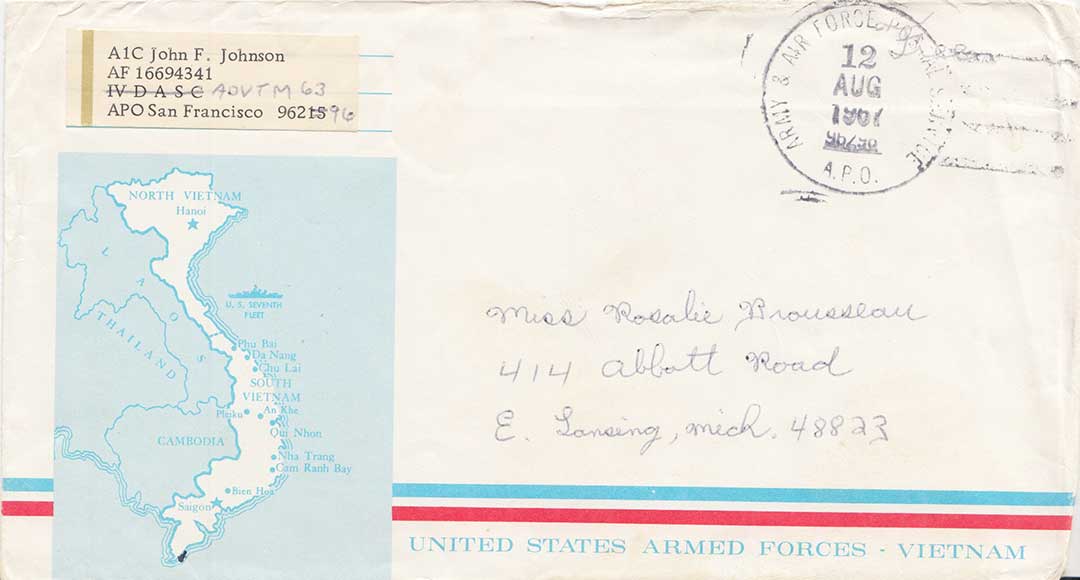 A1C John F. Johnson
AF 16694341
IV D A S C ADVTM 63
APO San Francisco 96215 96
ARMY & AIR FORCE POSTAL SERVICE
12
AUG
1967
96296
A.P.O.
NORTH VIETNAM
Hanoi
LAOS
THAILAND
U. S. SEVENTH
FLEET
Phu Bai
Da Nang
Chu Lai
SOUTH
VIETNAM
Pleiku
An Khe
Qui Nhon
CAMBODIA
Nha Trang
Cam Ranh Bay
Bien Hoa
Saigon
Miss Rosalie Brousseau
414 Abbott Road
E. Lansing, Mich. 48823
UNITED STATES ARMED FORCES - VIETNAM